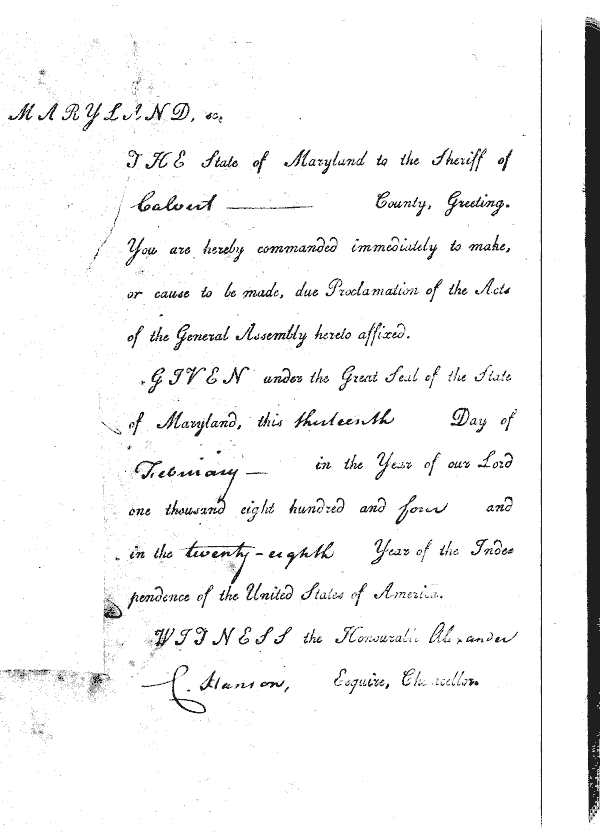 MARYLAND, sc.
THE State of Maryland to the Sheriff of
Calvert ——— County, Greeting.
You are hereby commanded immediately to make,
or cause to be made, due Proclamation of the Acts
of the General Assembly hereto affixed.
GIVEN under the Great Seal of the State
of Maryland, this thirteenth Day of
February — in the Year of our Lord
one thousand eight hundred and four and
in the twenty-eighth Year of the Inde=
pendence of the United States of America.
WITNESS the Honourable Alexander
C. Hanson, Esquire, Chancellor.